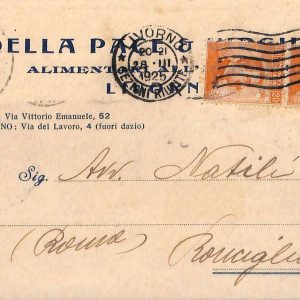 DELLA PACE &
LIVORNO
20-21
28 III
1925
ALIMENTARI
Via Vittorio Emanuele, 52
NO: Via del Lavoro, 4 (fuori dazio)
Sig. Avv. Natili
(Roma) Ronciglio